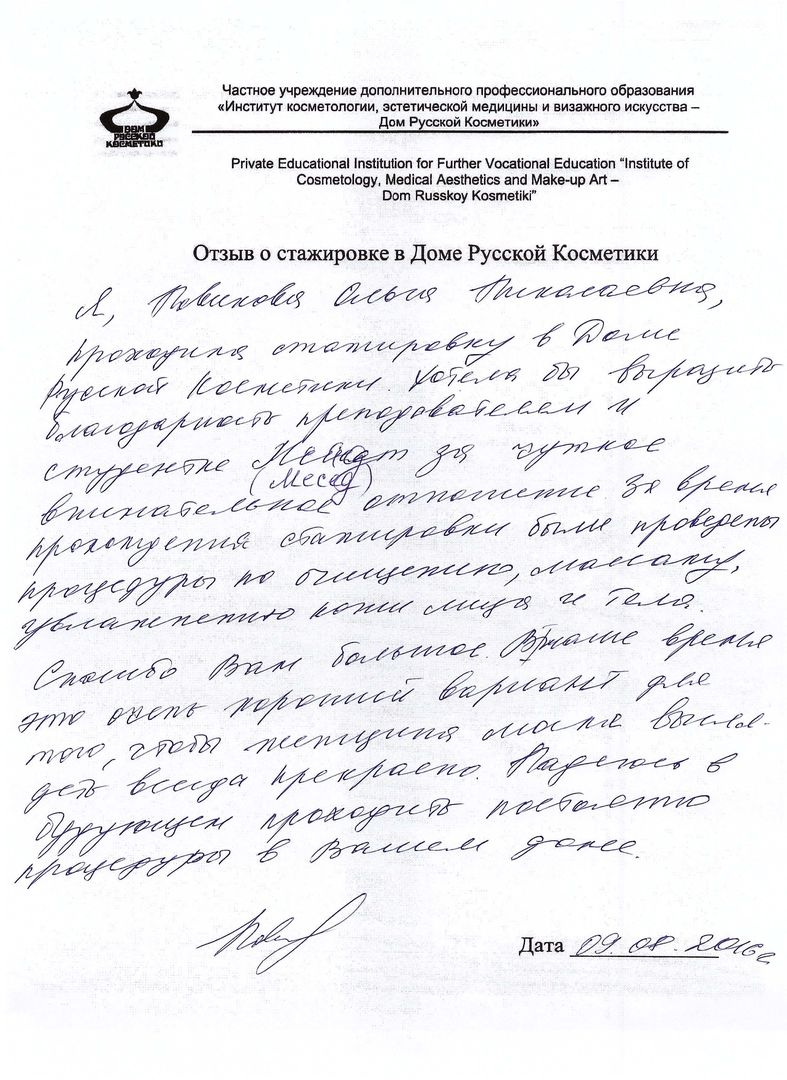 Частное учреждение дополнительного профессионального образования
«Институт косметологии, эстетической медицины и визажного искусства –
Дом Русской Косметики»
ДОМ
РУССКОЙ
КОСМЕТИКИ
Private Educational Institution for Further Vocational Education “Institute of
Cosmetology, Medical Aesthetics and Make-up Art –
Dom Russkoy Kosmetiki”
Отзыв о стажировке в Доме Русской Косметики
Я, Новикова Ольга Николаевна,
проходила стажировку в Доме
Русской Косметики. Хотела бы выразить
благодарность преподавателям и
студентке за чуткое
(Месед)
внимательное отношение. За время
прохождения стажировки были проведены
процедуры по очищению, массажу,
увлажнению кожи лица и тела.
Спасибо Вам большое. В наше время
это очень хороший вариант для
того, чтобы женщина могла выгля-
деть всегда прекрасно. Надеюсь в
будующем проходить постоянно
процедуры в Вашем доме.
Дата 09.08.2016г